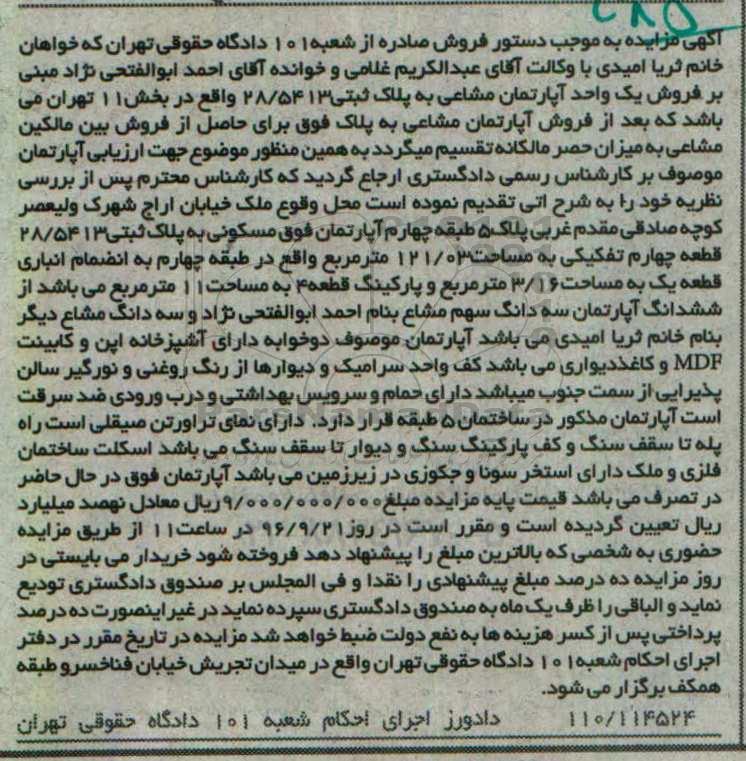 ۲۸۵
آگهی مزایده به موجب دستور فروش صادره از شعبه۱۰۱ دادگاه حقوقی تهران که خواهان
خانم ثریا امیدی با وکالت آقای عبدالکریم غلامی و خوانده آقای احمد ابوالفتحی نژاد مبنی
بر فروش یک واحد آپارتمان مشاعی به پلاک ثبتی۲۸/۵۴۱۳ واقع در بخش۱۱ تهران می
باشد که بعد از فروش آپارتمان مشاعی به پلاک فوق برای حاصل از فروش بین مالکین
مشاعی به میزان حصر مالکانه تقسیم میگردد به همین منظور موضوع جهت ارزیابی آپارتمان
موصوف بر کارشناس رسمی دادگستری ارجاع گردید که کارشناس محترم پس از بررسی
نظریه خود را به شرح اتی تقدیم نموده است محل وقوع ملک خیابان اراج شهرک ولیعصر
کوچه صادقی مقدم غربی پلاک۵ طبقه چهارم آپارتمان فوق مسکونی به پلاک ثبتی۲۸/۵۴۱۳
قطعه چهارم تفکیکی به مساحت۱۲۱/۰۳ مترمربع واقع در طبقه چهارم به انضمام انباری
قطعه یک به مساحت۳/۱۶ مترمربع و پارکینگ قطعه۴ به مساحت۱۱ مترمربع می باشد از
ششدانگ آپارتمان سه دانگ سهم مشاع بنام احمد ابوالفتحی نژاد و سه دانگ مشاع دیگر
بنام خانم ثریا امیدی می باشد آپارتمان موصوف دوخوابه دارای آشپزخانه اپن و کابینت
MDF و کاغذدیواری می باشد کف واحد سرامیک و دیوارها از رنگ روغنی و نورگیر سالن
پذیرایی از سمت جنوب میباشد دارای حمام و سرویس بهداشتی و درب ورودی ضد سرقت
است آپارتمان مذکور در ساختمان ۵ طبقه قرار دارد. دارای نمای تراورتن صیقلی است راه
پله تا سقف سنگ و کف پارکینگ سنگ و دیوار تا سقف سنگ می باشد اسکلت ساختمان
فلزی و ملک دارای استخر سونا و جکوزی در زیرزمین می باشد آپارتمان فوق در حال حاضر
در تصرف می باشد قیمت پایه مزایده مبلغ۹/۰۰۰/۰۰۰/۰۰۰ریال معادل نهصد میلیارد
ریال تعیین گردیده است و مقرر است در روز۹۶/۹/۲۱ در ساعت۱۱ از طریق مزایده
حضوری به شخصی که بالاترین مبلغ را پیشنهاد دهد فروخته شود خریدار می بایستی در
روز مزایده ده درصد مبلغ پیشنهادی را نقدا و فی المجلس بر صندوق دادگستری تودیع
نماید و الباقی را ظرف یک ماه به صندوق دادگستری سپرده نماید در غیر اینصورت ده درصد
پرداختی پس از کسر هزینه ها به نفع دولت ضبط خواهد شد مزایده در تاریخ مقرر در دفتر
اجرای احکام شعبه۱۰۱ دادگاه حقوقی تهران واقع در میدان تجریش خیابان فناخسرو طبقه
همکف برگزار می شود.
۱۱۰/۱۱۴۵۲۴ دادورز اجرای احکام شعبه ۱۰۱ دادگاه حقوقی تهران